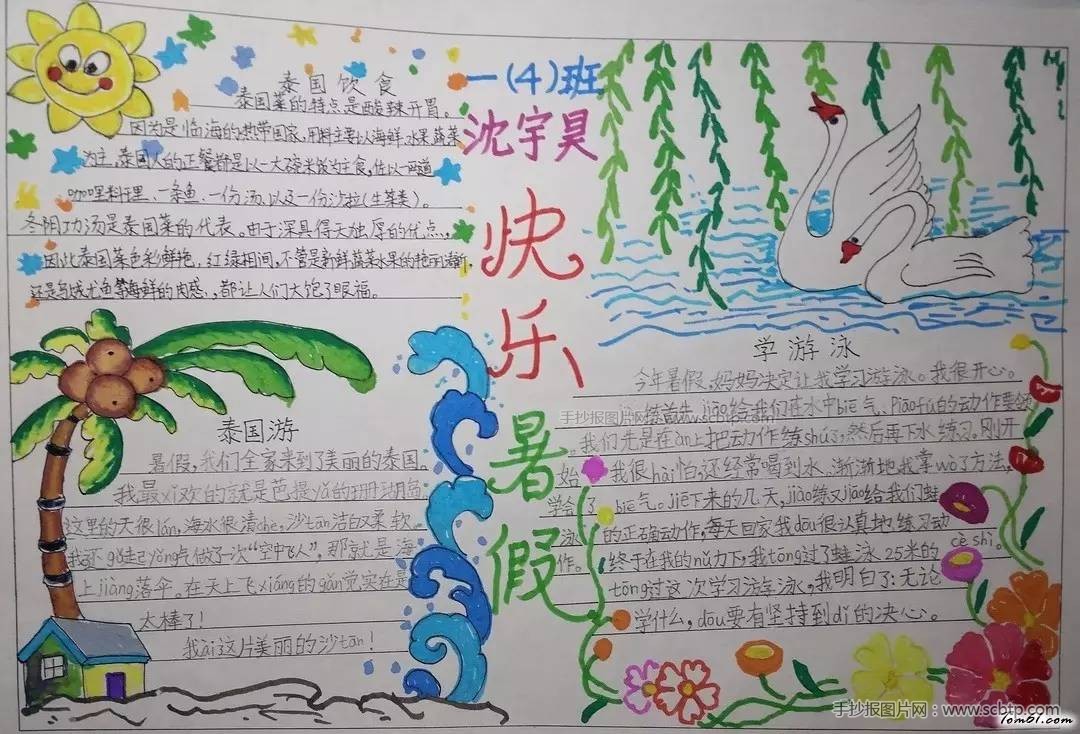 一(4)班
沈宇昊
快乐暑假
泰国饮食
泰国菜的特点是酸辣开胃。
因为是临海的热带国家,用料主要以海鲜、水果、蔬菜
为主。泰国人的正餐都是以一大碗米饭为主食,佐以一两道
咖哩料理、一条鱼、一份汤、以及一份沙拉(生菜类)。
冬阴功汤是泰国菜的代表。由于深具得天独厚的优点,
因此泰国菜色彩鲜艳,红绿相间,不管是新鲜蔬菜水果的艳丽清新,
还是鱼虾尤鱼等海鲜的肉感,都让人们大饱了眼福。
泰国游
暑假,我们全家来到了美丽的泰国。
我最xǐ欢的就是芭提yǎ的珊瑚岛。
这里的天很lán,海水很清chè,沙tān洁白又柔软。
我还gǔ起yǒng气做了一次“空中飞人”,那就是海
上jiàng落伞。在天上飞xiáng的gǎn觉实在是
太棒了!
我ài这片美丽的沙tān!
学游泳
今年暑假,妈妈决定让我学习游泳。我很开心。
练首先jiāo给我们在水中biē气、piāo fú的动作要领
。我们先是在àn上把动作练shú,然后再下水练习。刚开
始,我很hài怕,还经常喝到水。渐渐地我掌wò了方法,
学会了biē气。jiē下来的几天,jiào练又jiāo给我们蛙
泳的正确动作,每天回家我dōu很认真地练习动
作。终于在我的nǔ力下,我tōng过了蛙泳25米的
cè shì。
tōng过这次学习游泳,我明白了:无论
学什么,dōu要有坚持到dǐ的决心。
手抄报图片网
手抄报图片网:www.scbtp.com
Tom61.com